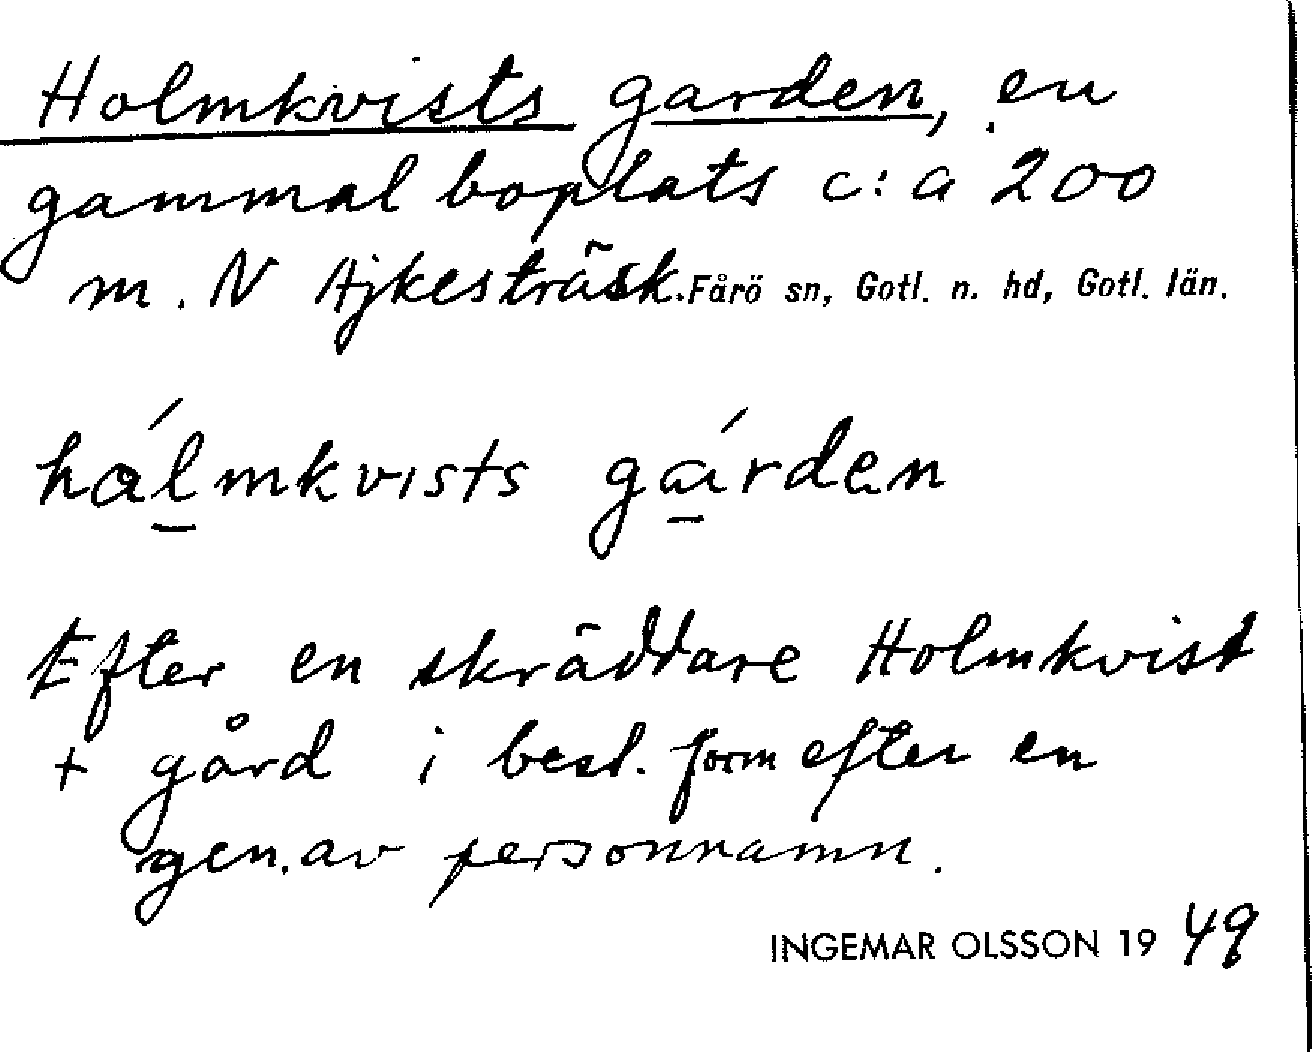 Holmkvists garden, en
gammal boplats c:a 200
m. N Ajkesträsk. Fårö sn, Gotl. n. hd, Gotl. län.
hálmkvists gárden
Efter en skräddare Holmkvist
+ gård i best. form efter en
gen. av personnamn.
INGEMAR OLSSON 19 49